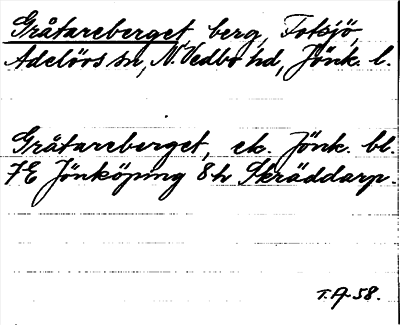 Gråtareberget, berg, Totsjö,
Adelövs sn, N. Vedbo hd, Jönk. l.
Gråtareberget, ek. Jönk. bl.
7E Jönköping 8h Skräddarp.
T. A-58.